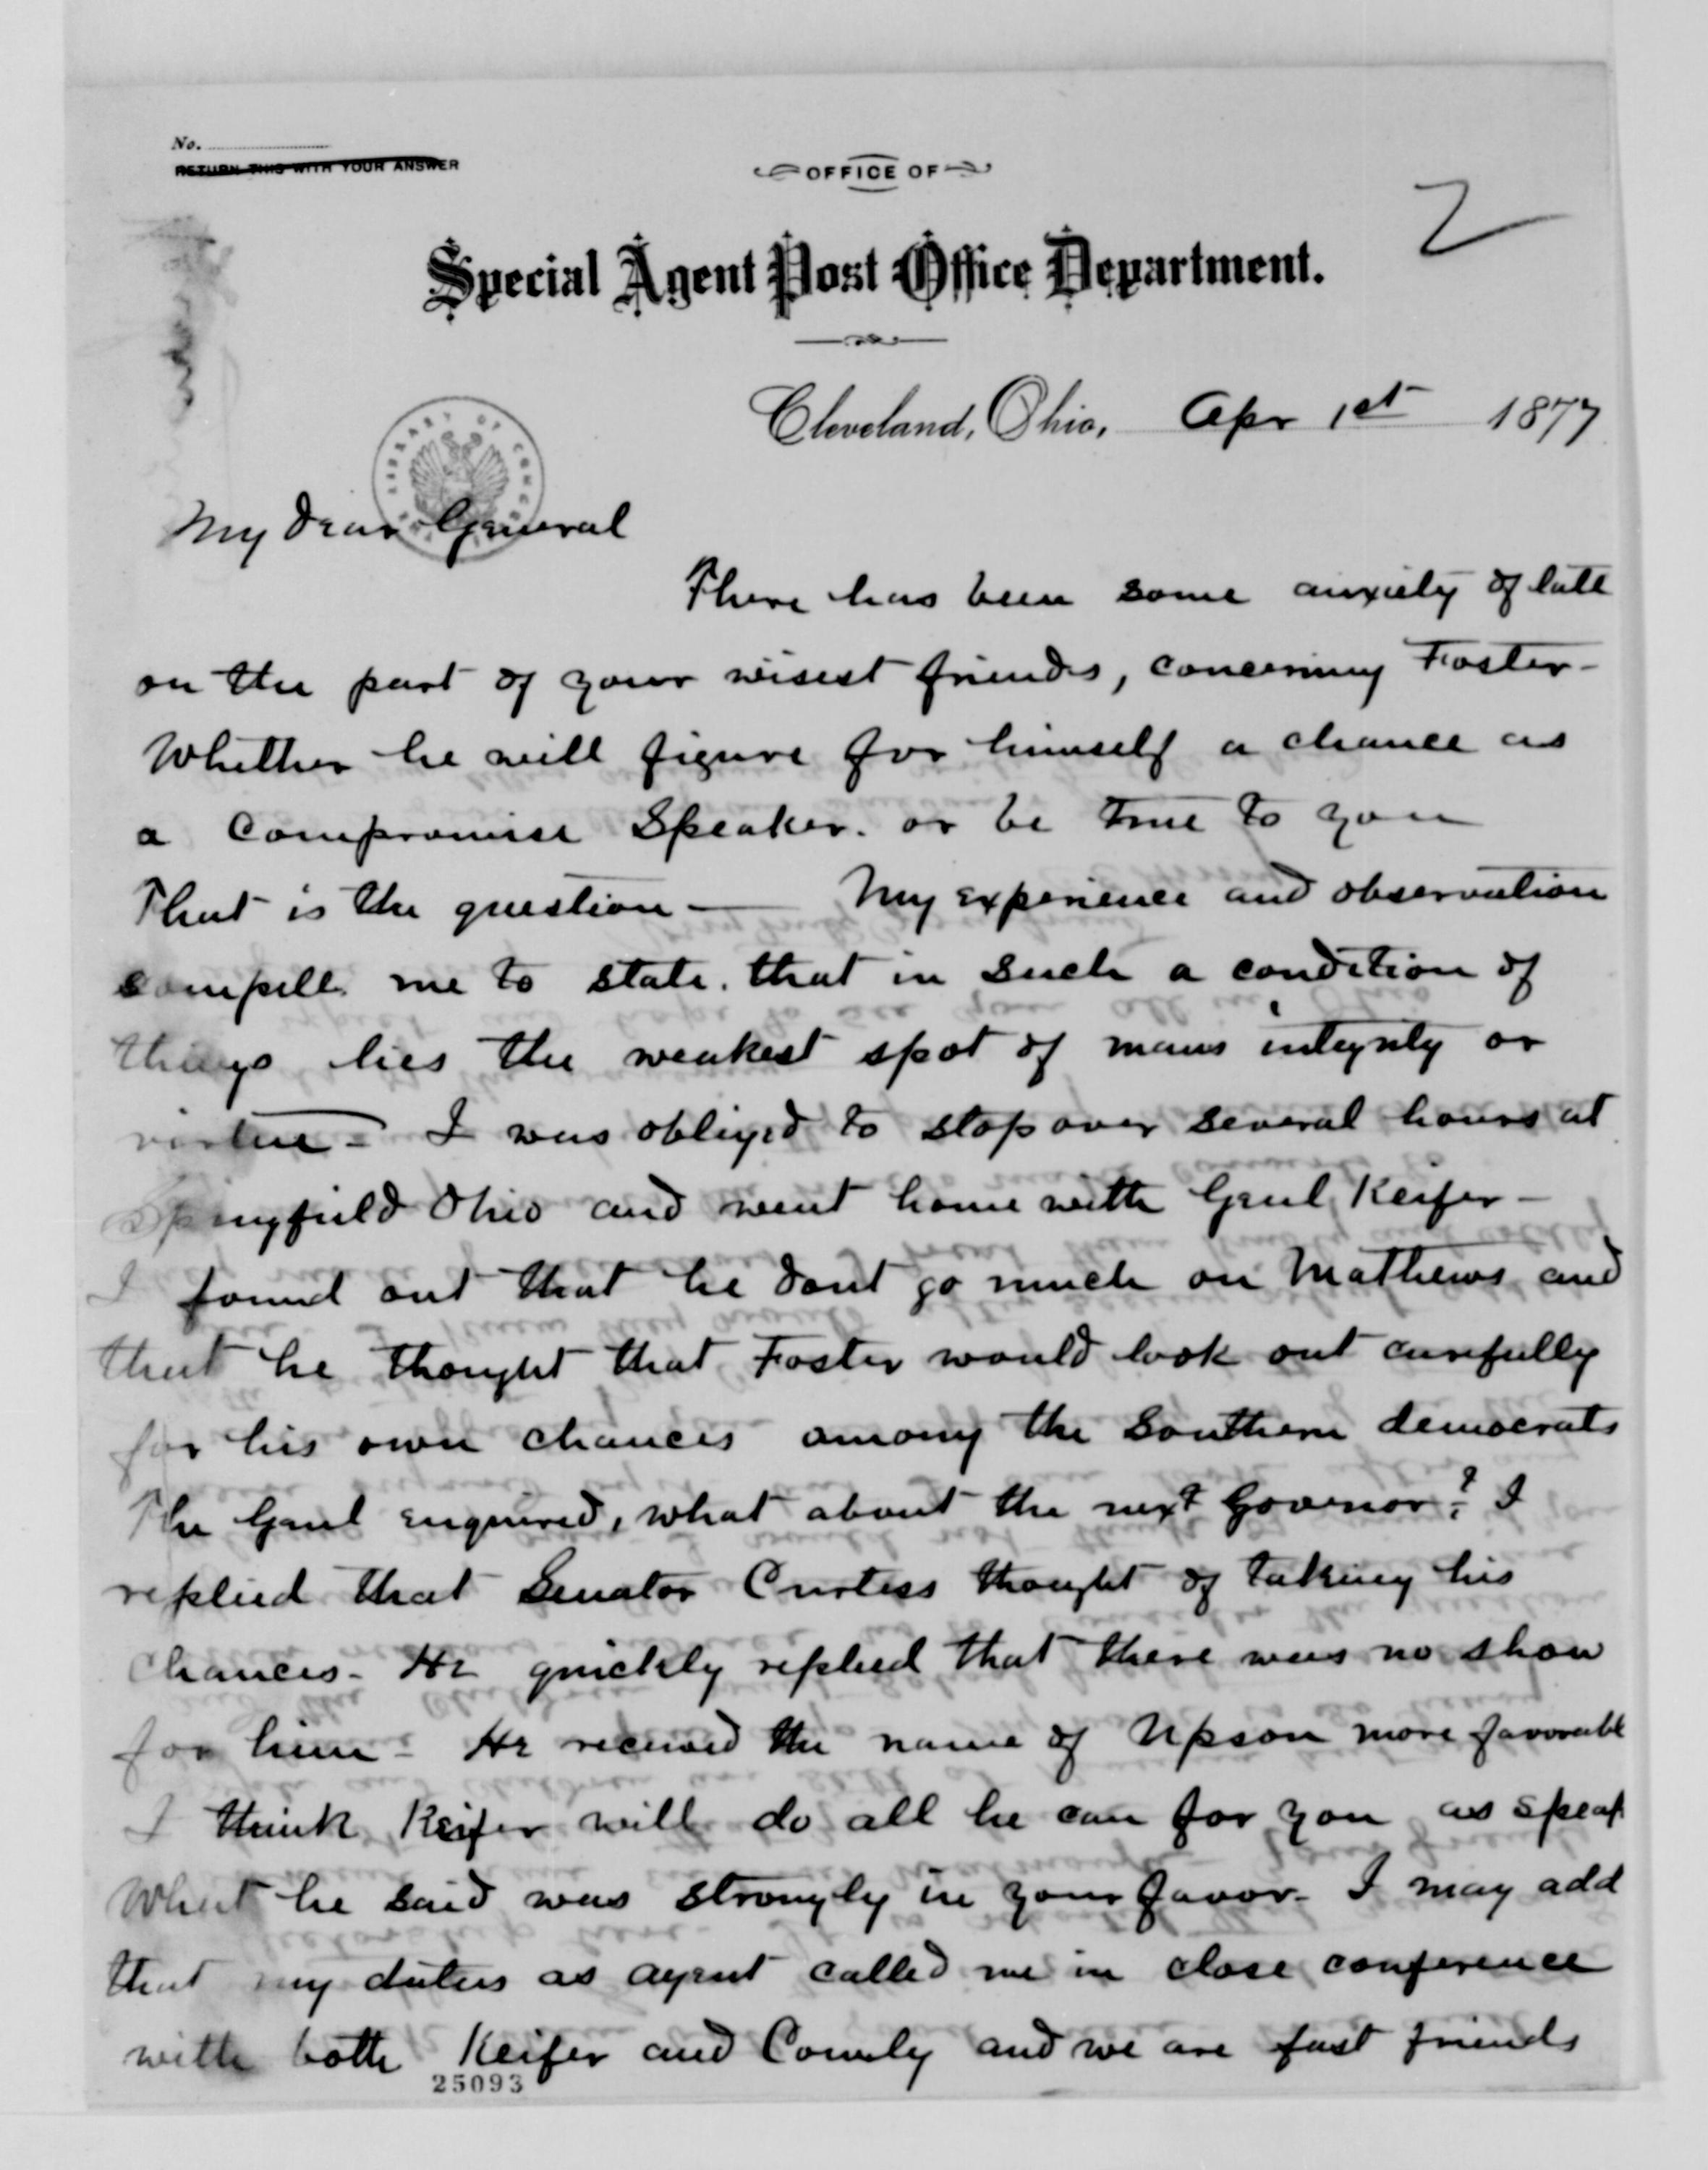 No.
RETURN THIS WITH YOUR ANSWER
OFFICE OF
2
Special Agent Post Office Department.
Cleveland, Ohio, Apr 1st 1877
LIBRARY OF CONGRESS
My Dear General
There has been some anxiety of late
on the part of your wisest friends, concerning Foster -
Whether he will figure for himself a chance as
a Compromise Speaker. or be true to you
That is the question - My experience and observation
compells me to state. that in such a condition of
things lies the weakest spot of mans integrity or
virtue - I was obliged to stop over several hours at
Springfield Ohio and went home with Genl Keifer -
I found out that he dont go much on Mathews and
that he thought that Foster would look out carefully
for his own chances among the Southern democrats
The Genl enquired, what about the next Govenor? I
replied that Senator Curtess thought of taking his
Chances - He quickly replied that there was no show
for him - He received the name of Upson more favorabl
I think Keifer will do all he can for you as Speak
What he said was strongly in your favor - I may add
that my duties as agent called me in close conference
with both Keifer and Comly and we are fast friends
25093